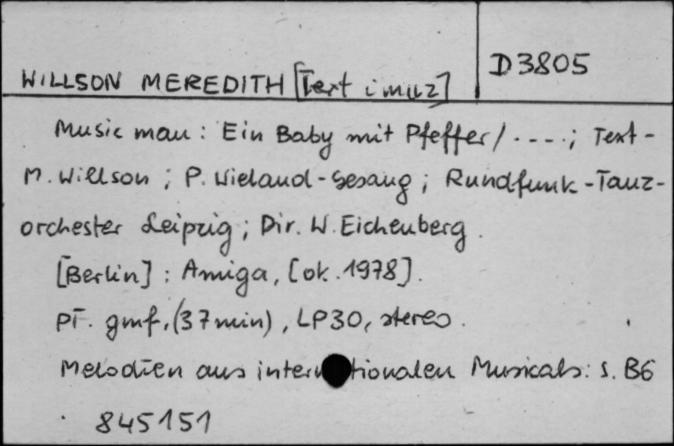 D3805
WILLSON MEREDITH [Text i muz]
Music man : Ein Baby mit Pfeffer / .---; Text-
M. Willson ; P. Wieland - Gesang ; Rundfunk-Tanz-
orchester Leipzig ; Dir. W. Eichenberg.
[Berlin] : Amiga, [ok. 1978].
Pł. gmf. (37 min), LP30, stereo.
Melodien aus internationalen Musicals : s. B6
845151